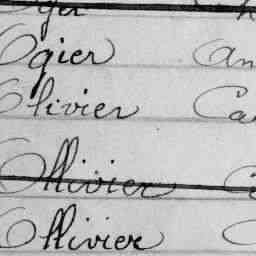 Ogier An
Olivier Ca
Ollivier
Ollivier